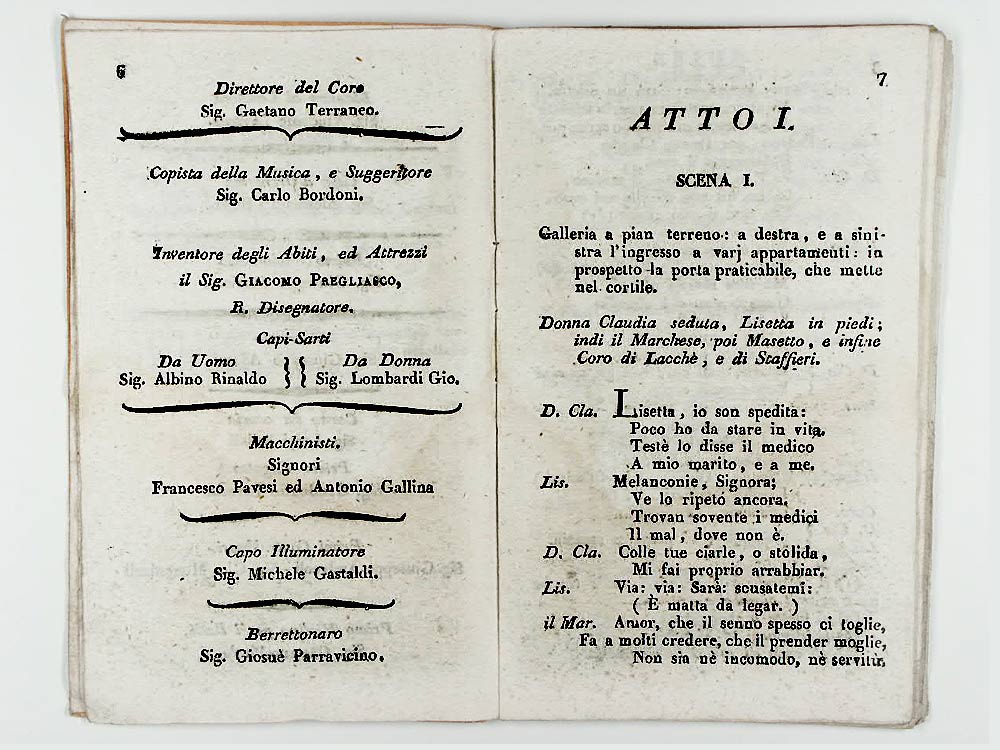 6
Direttore del Coro
Sig. Gaetano Terraneo.
Copista della Musica, e Suggeritore
Sig. Carlo Bordoni.
Inventore degli Abiti, ed Attrezzi
il Sig. GIACOMO PREGLIASCO,
R. Disegnatore.
Capi-Sarti
Da Uomo } { Da Donna
Sig. Albino Rinaldo } { Sig. Lombardi Gio.
Macchinisti.
Signori
Francesco Pavesi ed Antonio Gallina
Capo Illuminatore
Sig. Michele Gastaldi.
Berrettonaro
Sig. Giosuè Parravicino.
7
ATTO I.
SCENA I.
Galleria a pian terreno: a destra, e a sini-
stra l'ingresso a varj appartamenti: in
prospetto la porta praticabile, che mette
nel cortile.
Donna Claudia seduta, Lisetta in piedi;
indi il Marchese, poi Masetto, e infine
Coro di Lacchè, e di Staffieri.
D. Cla. Lisetta, io son spedita:
Poco ho da stare in vita.
Testè lo disse il medico
A mio marito, e a me.
Lis. Melanconie, Signora;
Ve lo ripeto ancora.
Trovan sovente i medici
Il mal, dove non è.
D. Cla. Colle tue ciarle, o stolida,
Mi fai proprio arrabbiar.
Lis. Via: via: Sarà: scusatemi:
( È matta da legar. )
il Mar. Amor, che il senno spesso ci toglie,
Fa a molti credere, che il prender moglie,
Non sia nè incomodo, nè servitir,